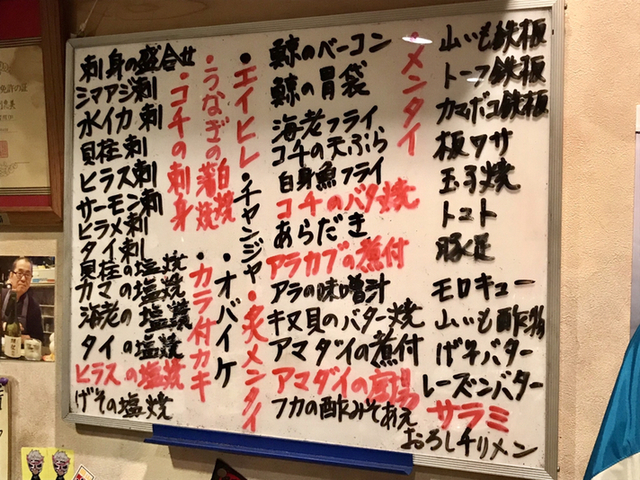 刺身の盛合せ
シマアジ刺
水イカ刺
貝柱刺
ヒラス刺
サーモン刺
ヒラメ刺
タイ刺
貝柱の塩焼
カマの塩焼
海老の塩焼
タイの塩焼
ヒラスの塩焼
げその塩焼
・コチの刺身
・うなぎの蒲焼
白焼
・カラ付カキ
・エイヒレ
・チャンジャ
・オバイケ
・炙メンタイ
鯨のベーコン
鯨の胃袋
海老フライ
コチの天ぷら
白身魚フライ
コチのバタ焼
あらだき
アラカブの煮付
アラの味噌汁
キヌ貝のバター焼
アマダイの煮付
アマダイの
フカの酢みそあえ
・メンタイ
山いも鉄板
トーフ鉄板
カマボコ鉄板
板ワサ
玉子焼
トマト
豚足
モロキュー
山いも酢物
げそバター
レーズンバター
サラミ
おろしチリメン